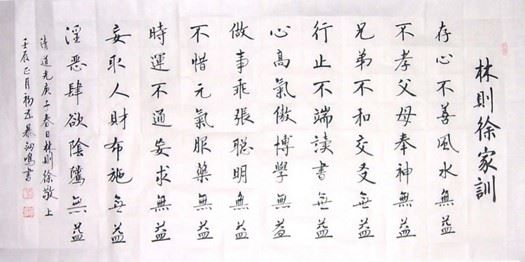 林則徐家訓
存心不善風水無益
不孝父母奉神無益
兄弟不和交友無益
行止不端讀書無益
心高氣傲博學無益
做事乖張聰明無益
不惜元氣服藥無益
時運不通妄求無益
妄取人財布施無益
淫惡肆欲陰騭無益
清道光庚子春日林則徐敬上
壬辰正月鳴書